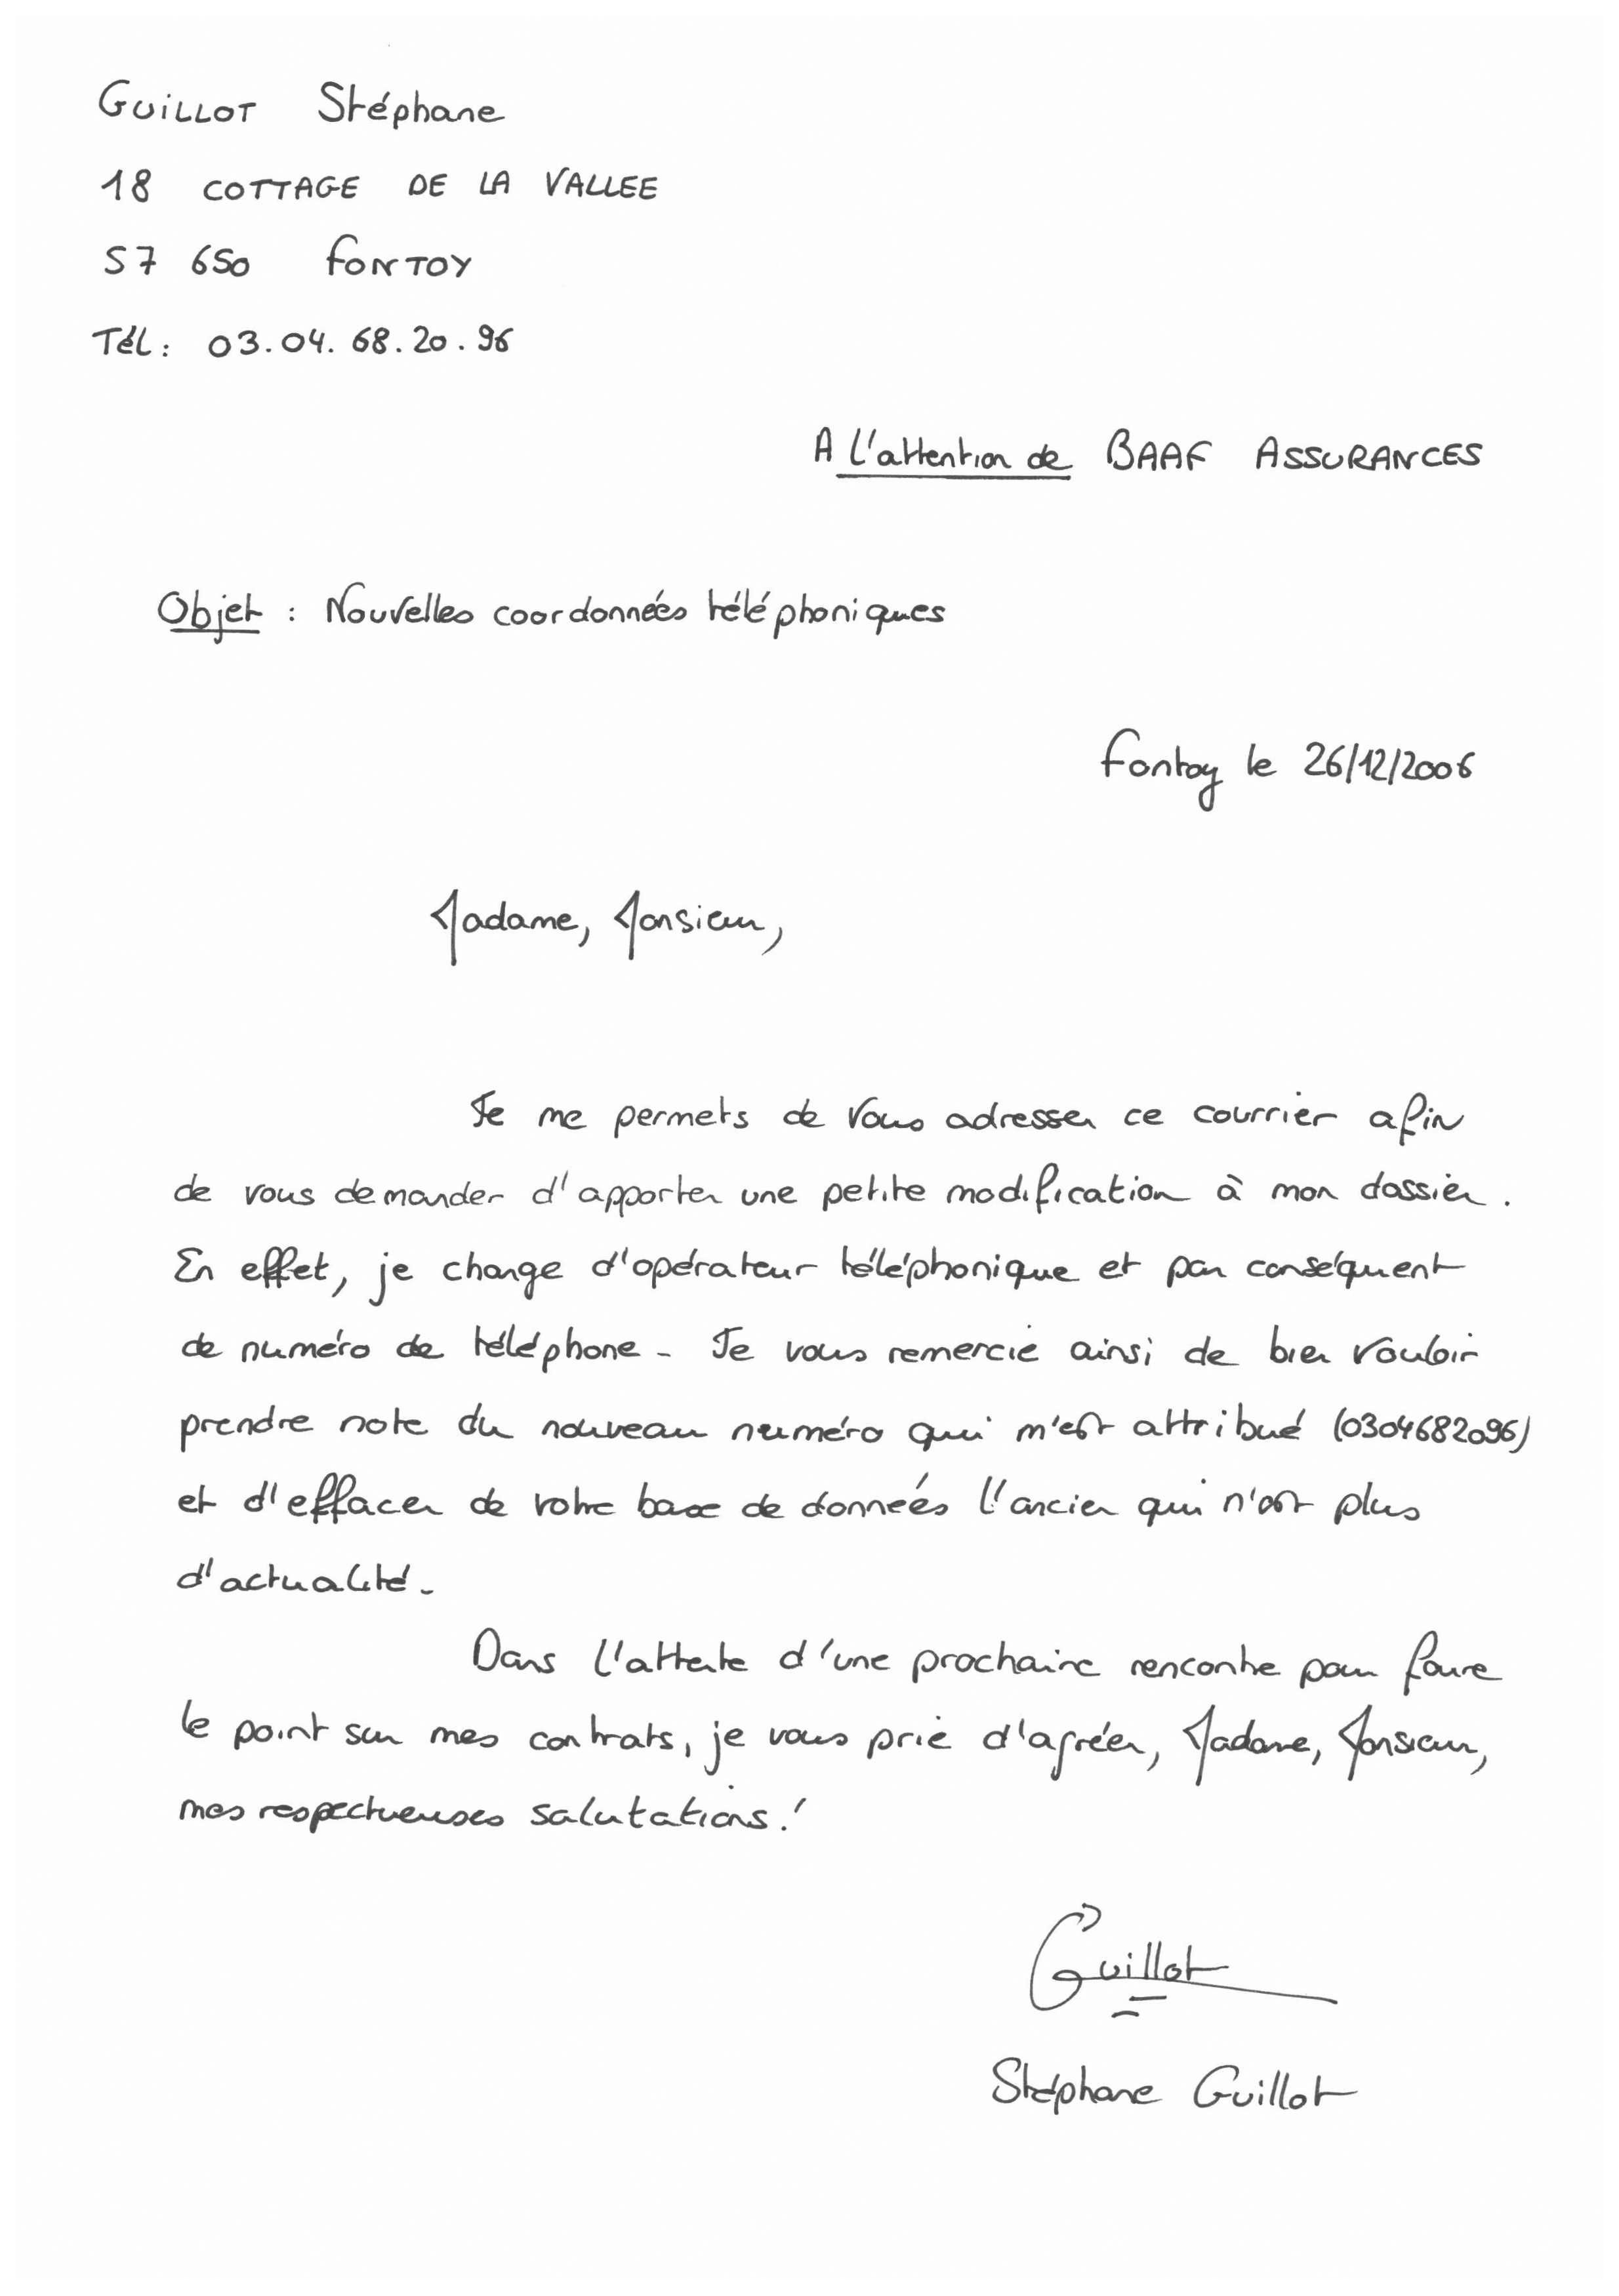 GUILLOT Stéphane
18 COTTAGE DE LA VALLEE
57 650 FONTOY
Tél : 03.04.68.20.96
A L'attention de BAAF ASSURANCES
Objet : Nouvelles coordonnées téléphoniques
Fontoy le 26/12/2006
Madame, Monsieur,
Je me permets de vous adresser ce courrier afin
de vous demander d'apporter une petite modification à mon dossier.
En effet, je change d'opérateur téléphonique et par conséquent
de numéro de téléphone. Je vous remercie ainsi de bien vouloir
prendre note du nouveau numéro qui m'est attribué (0304682096)
et d'effacer de votre base de données l'ancien qui n'est plus
d'actualité.
Dans l'attente d'une prochaine rencontre pour faire
le point sur mes contrats, je vous prie d'agréer, Madame, Monsieur,
mes respectueuses salutations !
Guillot
Stéphane Guillot